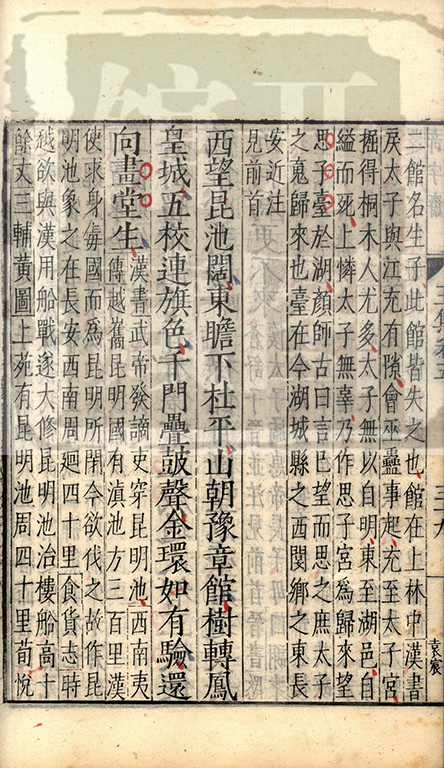 二館名生子此館皆失之也館在上林中漢書
戾太子與江充有隙會巫蠱事起充至太子宮
掘得桐木人尤多太子無以自明東至湖邑自
縊而死上憐太子無辜乃作思子宮爲歸來望
思子臺於湖顏師古曰言已望而思之庶太子
之䰟歸來也臺在今湖城縣之西閿鄉之東長
安近注
見前首
西望昆池闊東瞻下杜平山朝豫章館樹轉鳳
皇城五校連旗色千門疊鼓聲金環如有驗還
向畫堂生漢書武帝發謫吏穿昆明池西南夷
傳越嶲昆明國有滇池方三百里漢
使求身毒國而爲昆明所閉今欲伐之故作昆
明池象之在長安西南周廻四十里食貨志時
越欲與漢用船戰逐大修昆明池治樓船高十
餘丈三輔黃圖上苑有昆明池周四十里荀悅
三十九
袁宸